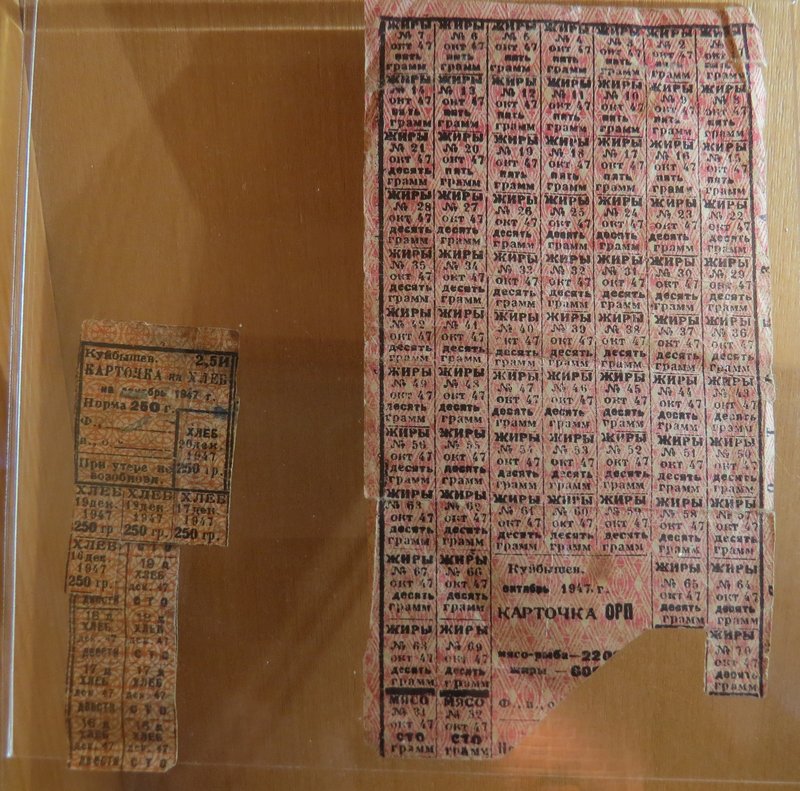 Куйбышев. 2,5И
КАРТОЧКА на ХЛЕБ
на декабрь 1947 г.
Норма 250 г.
Ф.,
и., о.
При утере не
возобновл.
ХЛЕБ
20 дек.
1947
250 гр.
ХЛЕБ ХЛЕБ ХЛЕБ
19 дек. 18 дек. 17 дек.
1947 1947 1947
250 гр. 250 гр. 250 гр.
ХЛЕБ
16 дек.
1947
250 гр.
сто
19 д
ХЛЕБ
дек. 47
двести сто
18 д 18 д
ХЛЕБ ХЛЕБ
дек. 47 дек. 47
двести сто
17 д 17 д
ХЛЕБ ХЛЕБ
дек. 47 дек. 47
двести сто
16 д 16 д
ХЛЕБ ХЛЕБ
дек. 47 дек. 47
двести сто
ЖИРЫ ЖИРЫ ЖИРЫ ЖИРЫ ЖИРЫ ЖИРЫ ЖИРЫ
№ 7 № 6 № 5 № 4 № 3 № 2 № 1
окт 47 окт 47 окт 47 окт 47 окт 47 окт 47 окт 47
пять пять пять пять пять пять пять
грамм грамм грамм грамм грамм грамм грамм
ЖИРЫ ЖИРЫ ЖИРЫ ЖИРЫ ЖИРЫ ЖИРЫ ЖИРЫ
№ 14 № 13 № 12 № 11 № 10 № 9 № 8
окт 47 окт 47 окт 47 окт 47 окт 47 окт 47 окт 47
пять пять пять пять пять пять пять
грамм грамм грамм грамм грамм грамм грамм
ЖИРЫ ЖИРЫ ЖИРЫ ЖИРЫ ЖИРЫ ЖИРЫ ЖИРЫ
№ 21 № 20 № 19 № 18 № 17 № 16 № 15
окт 47 окт 47 окт 47 окт 47 окт 47 окт 47 окт 47
десять десять пять пять пять пять пять
грамм грамм грамм грамм грамм грамм грамм
ЖИРЫ ЖИРЫ ЖИРЫ ЖИРЫ ЖИРЫ ЖИРЫ ЖИРЫ
№ 28 № 27 № 26 № 25 № 24 № 23 № 22
окт 47 окт 47 окт 47 окт 47 окт 47 окт 47 окт 47
десять десять десять десять десять десять десять
грамм грамм грамм грамм грамм грамм грамм
ЖИРЫ ЖИРЫ ЖИРЫ ЖИРЫ ЖИРЫ ЖИРЫ ЖИРЫ
№ 35 № 34 № 33 № 32 № 31 № 30 № 29
окт 47 окт 47 окт 47 окт 47 окт 47 окт 47 окт 47
десять десять десять десять десять десять десять
грамм грамм грамм грамм грамм грамм грамм
ЖИРЫ ЖИРЫ ЖИРЫ ЖИРЫ ЖИРЫ ЖИРЫ ЖИРЫ
№ 42 № 41 № 40 № 39 № 38 № 37 № 36
окт 47 окт 47 окт 47 окт 47 окт 47 окт 47 окт 47
десять десять десять десять десять десять десять
грамм грамм грамм грамм грамм грамм грамм
ЖИРЫ ЖИРЫ ЖИРЫ ЖИРЫ ЖИРЫ ЖИРЫ ЖИРЫ
№ 49 № 48 № 47 № 46 № 45 № 44 № 43
окт 47 окт 47 окт 47 окт 47 окт 47 окт 47 окт 47
десять десять десять десять десять десять десять
грамм грамм грамм грамм грамм грамм грамм
ЖИРЫ ЖИРЫ ЖИРЫ ЖИРЫ ЖИРЫ ЖИРЫ ЖИРЫ
№ 56 № 55 № 54 № 53 № 52 № 51 № 50
окт 47 окт 47 окт 47 окт 47 окт 47 окт 47 окт 47
десять десять десять десять десять десять десять
грамм грамм грамм грамм грамм грамм грамм
ЖИРЫ ЖИРЫ ЖИРЫ ЖИРЫ ЖИРЫ ЖИРЫ ЖИРЫ
№ 63 № 62 № 61 № 60 № 59 № 58 № 57
окт 47 окт 47 окт 47 окт 47 окт 47 окт 47 окт 47
десять десять десять десять десять десять десять
грамм грамм грамм грамм грамм грамм грамм
ЖИРЫ ЖИРЫ ЖИРЫ ЖИРЫ
№ 67 № 66 № 65 № 64
окт 47 окт 47 окт 47 окт 47
десять десять десять десять
грамм грамм грамм грамм
Куйбышев.
октябрь 1947 г.
КАРТОЧКА ОРП
мясо-рыба—220
жиры —60
Ф., и., о
ЖИРЫ ЖИРЫ ЖИРЫ
№ 68 № 69 № 70
окт 47 окт 47 окт 47
десять десять десять
грамм грамм грамм
МЯСО МЯСО
№ 31 № 32
окт 47 окт 47
сто сто
грамм грамм